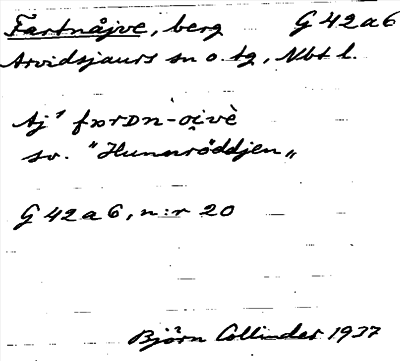 Fartnåjve, berg G 42 a 6
Arvidsjaurs sn o. tg, Nbt l.
fɷrDn-oi̯vè
sv. "Hunnröddjen"
G 42 a 6, n:r 20
Björn Collinder 1937